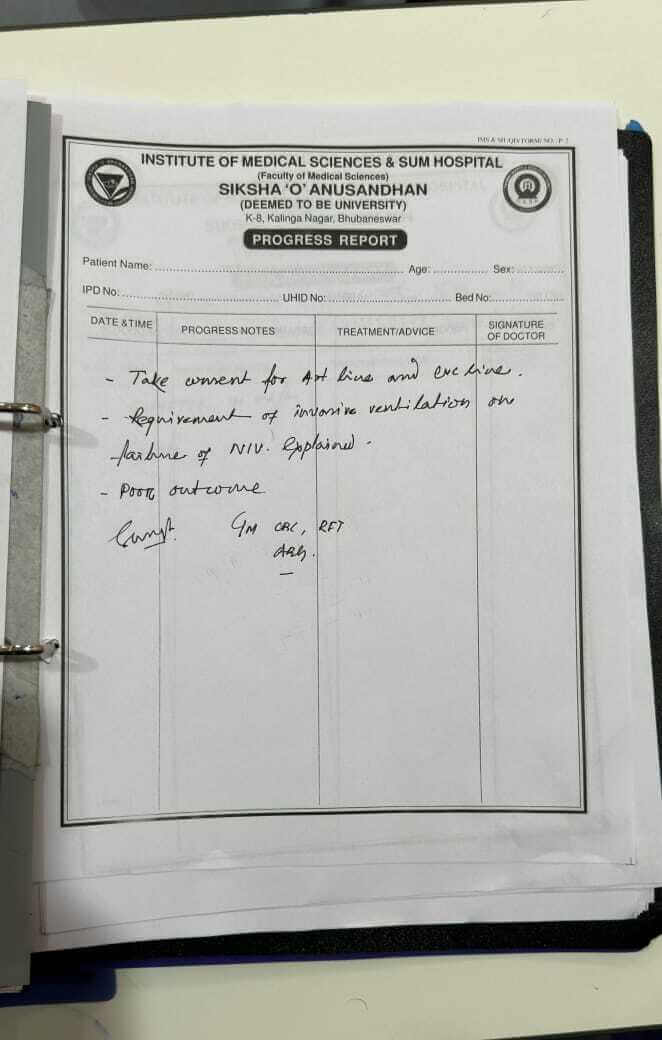 INSTITUTE OF MEDICAL SCIENCES & SUM HOSPITAL
(Faculty of Medical Sciences)
SIKSHA 'O' ANUSANDHAN
(DEEMED TO BE UNIVERSITY)
K-8, Kalinga Nagar, Bhubaneswar
PROGRESS REPORT
Patient Name: Age: Sex:
IPD No: UHID No: Bed No:
DATE & TIME PROGRESS NOTES TREATMENT/ADVICE SIGNATURE OF DOCTOR
- Take consent for Art line and CVC line.
- Requirement of invasive ventilation on
failure of NIV. Explained.
- Poor outcome
CBC, RFT
ABG.